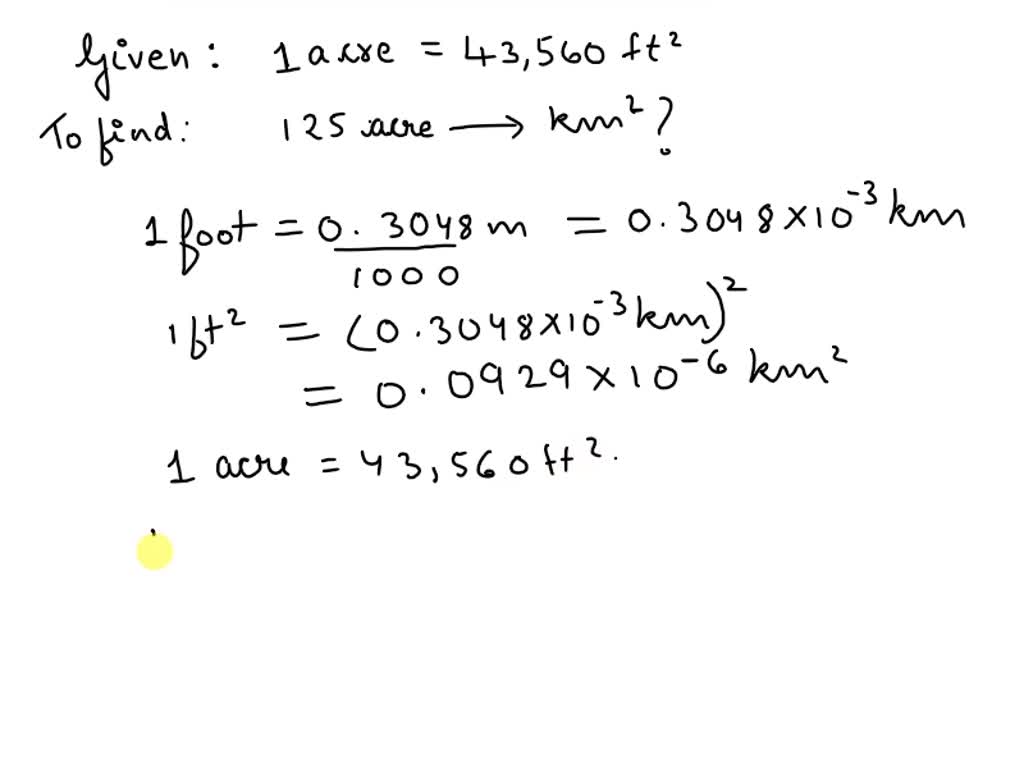 Given: 1 acre = 43,560 ft²
To find: 125 acre → km²?
1 foot = 0.3048 m / 1000 = 0.3048×10⁻³ km
1 ft² = (0.3048×10⁻³ km)²
= 0.0929 × 10⁻⁶ km²
1 acre = 43,560 ft².